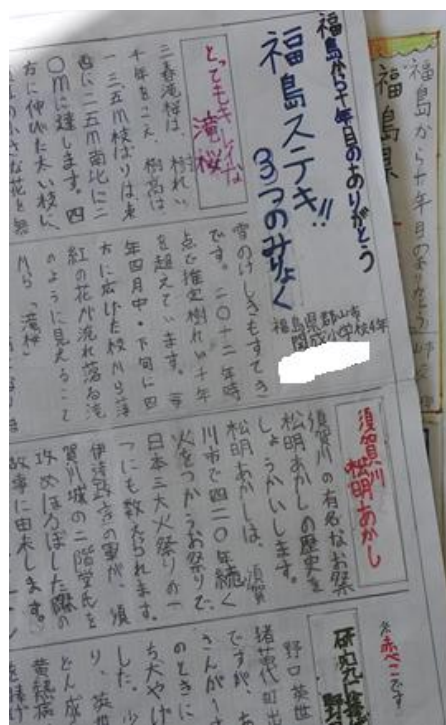 福島から十年目のありがとう
福島ステキ!!
3つのみりょく
福島県郡山市
開成小学校4年
とってもキレイな
滝桜
三春滝桜は、樹れい
千年をこえ、樹高は
一三.五m枝はりは東
西に二五m南北に二
〇mに達します。四
方に伸びた太い枝に
雪のけしきもすてき
です。二〇十二年時
点で推定樹れい千年
を超えています。毎
年四月中・下旬に四
方に広げた枝から薄
紅の花が流れ落る滝
のように見えること
から「滝桜」
須賀川
松明あかし
須賀川の有名なお祭
松明あかしの歴史を
しょうかいします。
松明あかしは、須賀
川市で四二〇年続く
火をつかうお祭りで、
日本三大火祭りの一
つにも数えられます。
伊達政宗の軍が、須
賀川城の二階堂氏を
攻めほろぼした際の
故事に由来します。
赤べこです
野口英世
猪苗代町出
ですが、
さんが1さ
のときに
ち大やけ
した。少
り、英世
とん成
黄熱病
福島から十年目のありがとう
福島県